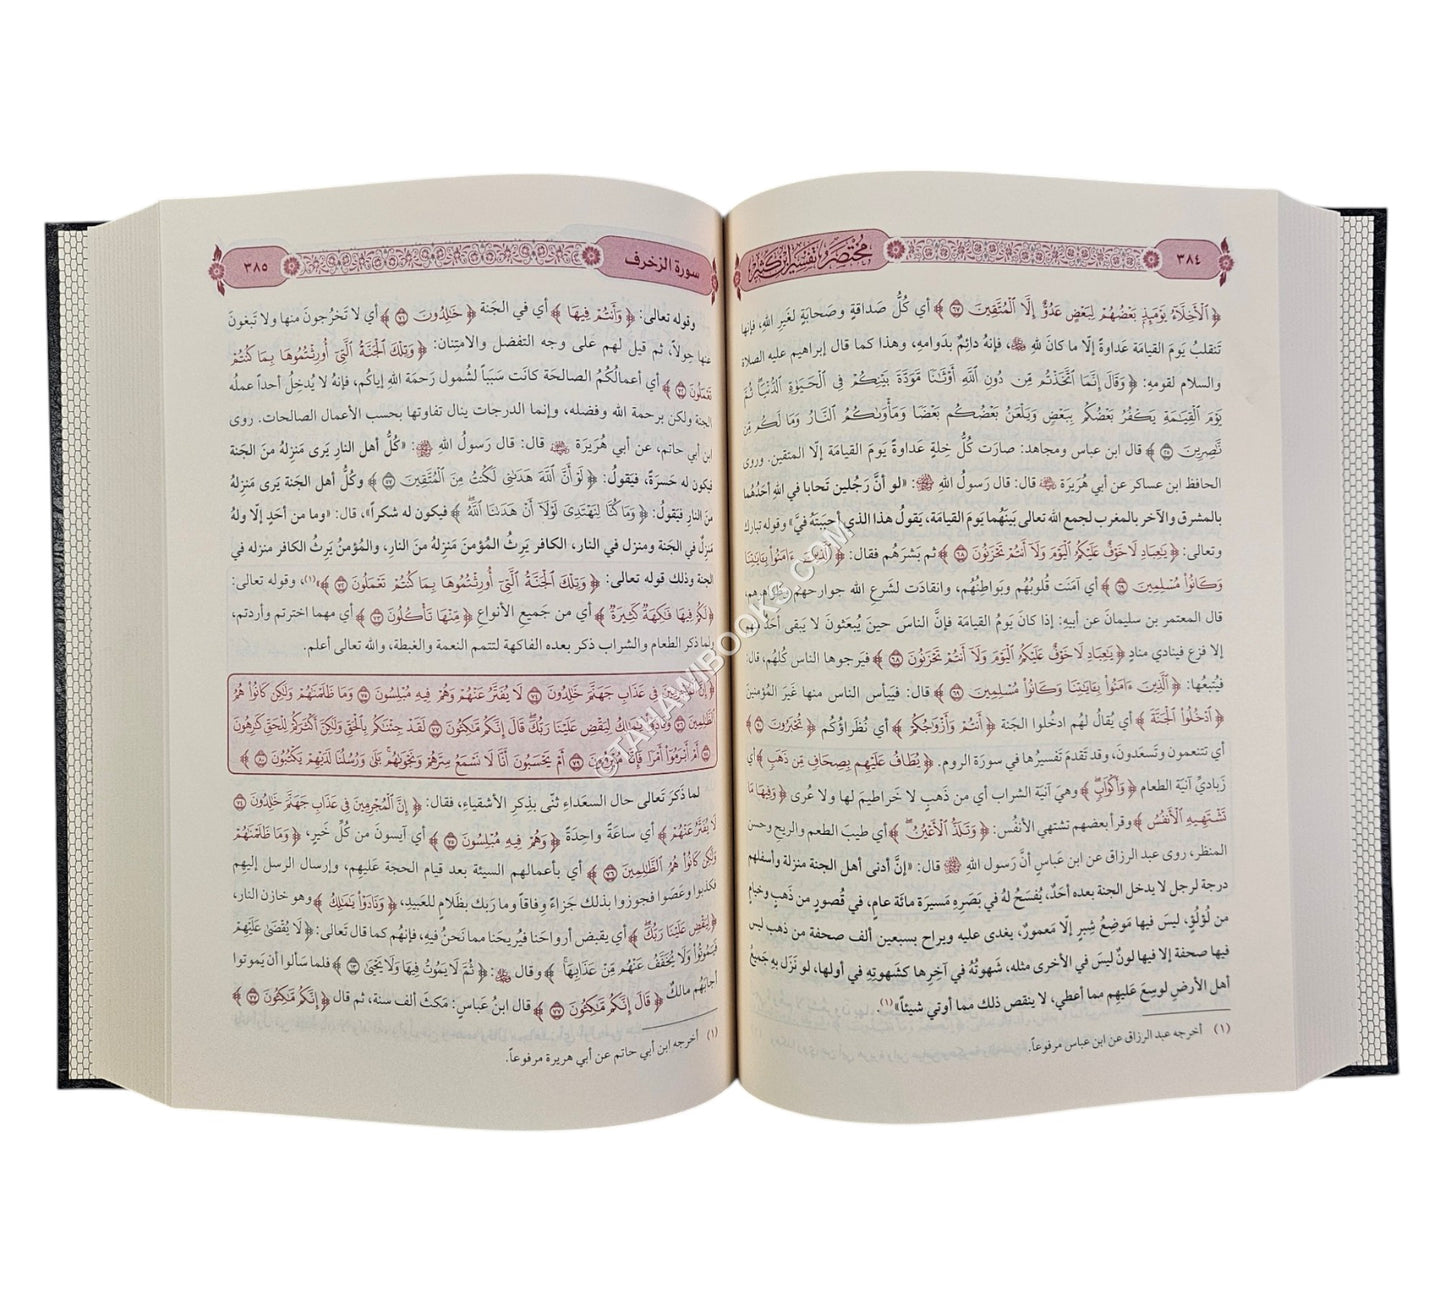 ٣٨٤
مختصر تفسير ابن كثير
﴿ ٱلْأَخِلَّآءُ يَوْمَئِذٍۭ بَعْضُهُمْ لِبَعْضٍ عَدُوٌّ إِلَّا ٱلْمُتَّقِينَ ٦٧ ﴾ أي كُلُّ صَداقةٍ وصَحابَةٍ لغَيرِ اللهِ، فإنها
تَنقلبُ يَومَ القيامَة عَداوةً إلّا ما كانَ للهِ ﷻ، فإنهُ دائِمٌ بدَوامِهِ، وهذا كما قال إبراهيم عليه الصلاة
والسلام لقومِهِ: ﴿ وَقَالَ إِنَّمَا ٱتَّخَذْتُم مِّن دُونِ ٱللَّهِ أَوْثَـٰنًا مَّوَدَّةَ بَيْنِكُمْ فِى ٱلْحَيَوٰةِ ٱلدُّنْيَا ثُمَّ
يَوْمَ ٱلْقِيَـٰمَةِ يَكْفُرُ بَعْضُكُم بِبَعْضٍ وَيَلْعَنُ بَعْضُكُم بَعْضًا وَمَأْوَىٰكُمُ ٱلنَّارُ وَمَا لَكُم مِّن
نَّـٰصِرِينَ ٢٥ ﴾ قال ابن عباس ومجاهد: صارَت كُلُّ خِلةٍ عَداوةً يَومَ القيامَة إلّا المتقين. وروى
الحافظ ابن عساكر عن أبي هُرَيرَة ﷺ قال: قال رَسولُ اللهِ ﷺ: «لو أنَّ رَجُلين تَحابا في اللهِ أحَدُهُما
بالمشرق والآخر بالمغرب لجمع الله تعالى بَينَهُما يَومَ القيامَة، يَقولُ هذا الذي أحبَبتَهُ فيَّ» وقوله تبارك
وتعالى: ﴿ يَـٰعِبَادِ لَا خَوْفٌ عَلَيْكُمُ ٱلْيَوْمَ وَلَآ أَنتُمْ تَحْزَنُونَ ٦٨ ﴾ ثم بَشرَهُم فقال: ﴿ ٱلَّذِينَ ءَامَنُوا۟ بِـَٔايَـٰتِنَا
وَكَانُوا۟ مُسْلِمِينَ ٦٩ ﴾ أي آمَنَت قُلوبُهُم وبَواطِنُهُم، وانقادَت لشَرعِ اللهِ جوارحهم وظَواهِرهم،
قال المعتمر بن سليمان عن أبيهِ: إذا كانَ يَومُ القيامَة فإنَّ الناسَ حينَ يُبعَثونَ لا يَبقى أحَدٌ منهم
إلا فزع فينادي منادٍ ﴿ يَـٰعِبَادِ لَا خَوْفٌ عَلَيْكُمُ ٱلْيَوْمَ وَلَآ أَنتُمْ تَحْزَنُونَ ٦٨ ﴾ فيَرجوها الناس كُلهُم، قال:
فيُتبِعُها: ﴿ ٱلَّذِينَ ءَامَنُوا۟ بِـَٔايَـٰتِنَا وَكَانُوا۟ مُسْلِمِينَ ٦٩ ﴾ قال: فيَيأس الناس منها غَيرَ المُؤمنين
﴿ ٱدْخُلُوا۟ ٱلْجَنَّةَ ﴾ أي يُقالُ لهُم ادخُلوا الجَنة ﴿ أَنتُمْ وَأَزْوَٰجُكُمْ ﴾ أي نُظَراؤُكُم ﴿ تُحْبَرُونَ ٧٠ ﴾
أي تتنعمون وتَسعَدونَ، وقد تَقدمَ تَفسيرُها في سورَة الروم. ﴿ يُطَافُ عَلَيْهِم بِصِحَافٍ مِّن ذَهَبٍ ﴾ أي
زَباديِّ آنيَة الطعام ﴿ وَأَكْوَابٍ ﴾ وهيَ آنيَة الشراب أي من ذَهبٍ لا خَراطيمَ لها ولا عُرى ﴿ وَفِيهَا مَا
تَشْتَهِيهِ ٱلْأَنفُسُ ﴾ وقرأ بعضهم تشتهي الأنفُس: ﴿ وَتَلَذُّ ٱلْأَعْيُنُ ﴾ أي طيبَ الطعم والريح وحسن
المنظر، روى عبد الرزاق عن ابن عَباسٍ أنَّ رَسولَ اللهِ ﷺ قال: «إنَّ أدنى أهل الجنة منزلة وأسفلهم
درجة لرجل لا يدخل الجنة بعده أحَدٌ، يُفسَحُ لهُ في بَصَرِه مَسيرَة مائَة عامٍ، في قُصورٍ من ذَهبٍ وخيامٍ
من لُؤلُؤٍ، ليسَ فيها مَوضِعُ شِبرٍ إلّا مَعمورٌ، يغدى عليه ويراح بسبعين ألف صحفة من ذهب ليس
فيها صحفة إلا فيها لونٌ ليسَ في الأخرى مثله، شَهوتُهُ في آخِرِها كشَهوتِهِ في أولها، لو نَزَل بهِ جَميعُ
أهل الأرضِ لوسِعَ عَليهم مما أعطي، لا ينقص ذلك مما أوتي شَيئاً»(١).
(١) أخرجه عبد الرزاق عن ابن عباس مرفوعاً.
سورة الزخرف
٣٨٥
وقوله تعالى: ﴿ وَأَنتُمْ فِيهَا ﴾ أي في الجَنة ﴿ خَـٰلِدُونَ ٧١ ﴾ أي لا تَخرُجونَ منها ولا تَبغونَ
عَنها حِولاً، ثم قيل لهم على وجه التفضل والامتِنان: ﴿ وَتِلْكَ ٱلْجَنَّةُ ٱلَّتِىٓ أُورِثْتُمُوهَا بِمَا كُنتُمْ
تَعْمَلُونَ ٧٢ ﴾ أي أعمالُكُمُ الصالحَة كانَت سَبَباً لشُمول رَحمَة اللهِ إياكُم، فإنهُ لا يُدخِلُ أحداً عملُه
الجنة ولكن برحمة الله وفضله، وإنما الدرجات ينال تفاوتها بحسب الأعمال الصالحات. روى
ابن أبي حاتم، عن أبي هُرَيرَة ﷺ قال: قال رَسولُ اللهِ ﷺ: «كُلُّ أهل النار يَرى مَنزِلهُ منَ الجَنة
فيكون له حَسرَةً، فيَقولُ: ﴿ لَوْ أَنَّ ٱللَّهَ هَدَىٰنِى لَكُنتُ مِنَ ٱلْمُتَّقِينَ ٥٧ ﴾ وكُلُّ أهل الجَنة يَرى مَنزِلهُ
منَ النار فيَقولُ: ﴿ وَمَا كُنَّا لِنَهْتَدِىَ لَوْلَآ أَنْ هَدَىٰنَا ٱللَّهُ ﴾ فيكون له شكراً»، قال: «وما من أحَدٍ إلّا ولهُ
مَنزِلٌ في الجَنة ومنزل في النار، الكافر يَرِثُ المُؤمنَ مَنزِلهُ منَ النارِ، والمُؤمنُ يَرِثُ الكافر منزله في
الجنة وذلك قوله تعالى: ﴿ وَتِلْكَ ٱلْجَنَّةُ ٱلَّتِىٓ أُورِثْتُمُوهَا بِمَا كُنتُمْ تَعْمَلُونَ ٧٢ ﴾»(١)، وقوله تعالى:
﴿ لَكُمْ فِيهَا فَـٰكِهَةٌ كَثِيرَةٌ ﴾ أي من جَميع الأنواع ﴿ مِّنْهَا تَأْكُلُونَ ٧٣ ﴾ أي مهما اخترتم وأردتم،
ولما ذكر الطعام والشراب ذكر بعده الفاكهة لتتمم النعمة والغبطة، والله تعالى أعلم.
﴿ إِنَّ ٱلْمُجْرِمِينَ فِى عَذَابِ جَهَنَّمَ خَـٰلِدُونَ ٧٤ لَا يُفَتَّرُ عَنْهُمْ وَهُمْ فِيهِ مُبْلِسُونَ ٧٥ وَمَا ظَلَمْنَـٰهُمْ وَلَـٰكِن كَانُوا۟ هُمُ
ٱلظَّـٰلِمِينَ ٧٦ وَنَادَوْا۟ يَـٰمَـٰلِكُ لِيَقْضِ عَلَيْنَا رَبُّكَ قَالَ إِنَّكُم مَّـٰكِثُونَ ٧٧ لَقَدْ جِئْنَـٰكُم بِٱلْحَقِّ وَلَـٰكِنَّ أَكْثَرَكُمْ لِلْحَقِّ كَـٰرِهُونَ
٧٨ أَمْ أَبْرَمُوٓا۟ أَمْرًا فَإِنَّا مُبْرِمُونَ ٧٩ أَمْ يَحْسَبُونَ أَنَّا لَا نَسْمَعُ سِرَّهُمْ وَنَجْوَىٰهُم بَلَىٰ وَرُسُلُنَا لَدَيْهِمْ يَكْتُبُونَ ٨٠ ﴾
لما ذَكرَ تَعالى حال السعَداءِ ثنّى بذِكرِ الأشقياءِ، فقال: ﴿ إِنَّ ٱلْمُجْرِمِينَ فِى عَذَابِ جَهَنَّمَ خَـٰلِدُونَ ٧٤
لَا يُفَتَّرُ عَنْهُمْ ﴾ أي ساعَةً واحِدَةً ﴿ وَهُمْ فِيهِ مُبْلِسُونَ ٧٥ ﴾ أي آيسونَ من كُلِّ خَيرٍ، ﴿ وَمَا ظَلَمْنَـٰهُمْ
وَلَـٰكِن كَانُوا۟ هُمُ ٱلظَّـٰلِمِينَ ٧٦ ﴾ أي بأعمالهم السيئة بعد قيام الحجة عَليهم، وإرسال الرسل إليهم
فكذبوا وعَصَوا فجوزوا بذلك جَزاءً وِفاقاً وما رَبك بظَلامٍ للعَبيدِ، ﴿ وَنَادَوْا۟ يَـٰمَـٰلِكُ ﴾ وهو خازن النار،
﴿ لِيَقْضِ عَلَيْنَا رَبُّكَ ﴾ أي يقبض أرواحَنا فيُريحَنا مما نَحنُ فيهِ، فإنهُم كما قال تَعالى: ﴿ لَا يُقْضَىٰ عَلَيْهِمْ
فَيَمُوتُوا۟ وَلَا يُخَفَّفُ عَنْهُم مِّنْ عَذَابِهَا ﴾ وقال ﷻ: ﴿ ثُمَّ لَا يَمُوتُ فِيهَا وَلَا يَحْيَىٰ ١٣ ﴾ فلما سَألوا أن يَموتوا
أجابَهُم مالكٌ ﴿ قَالَ إِنَّكُم مَّـٰكِثُونَ ٧٧ ﴾ قال ابنُ عَباسٍ: مَكثَ ألف سنة، ثم قال ﴿ إِنَّكُم مَّـٰكِثُونَ ٧٧ ﴾
(١) أخرجه ابن أبي حاتم عن أبي هريرة مرفوعاً.
©TAHAMIBOOKS.COM